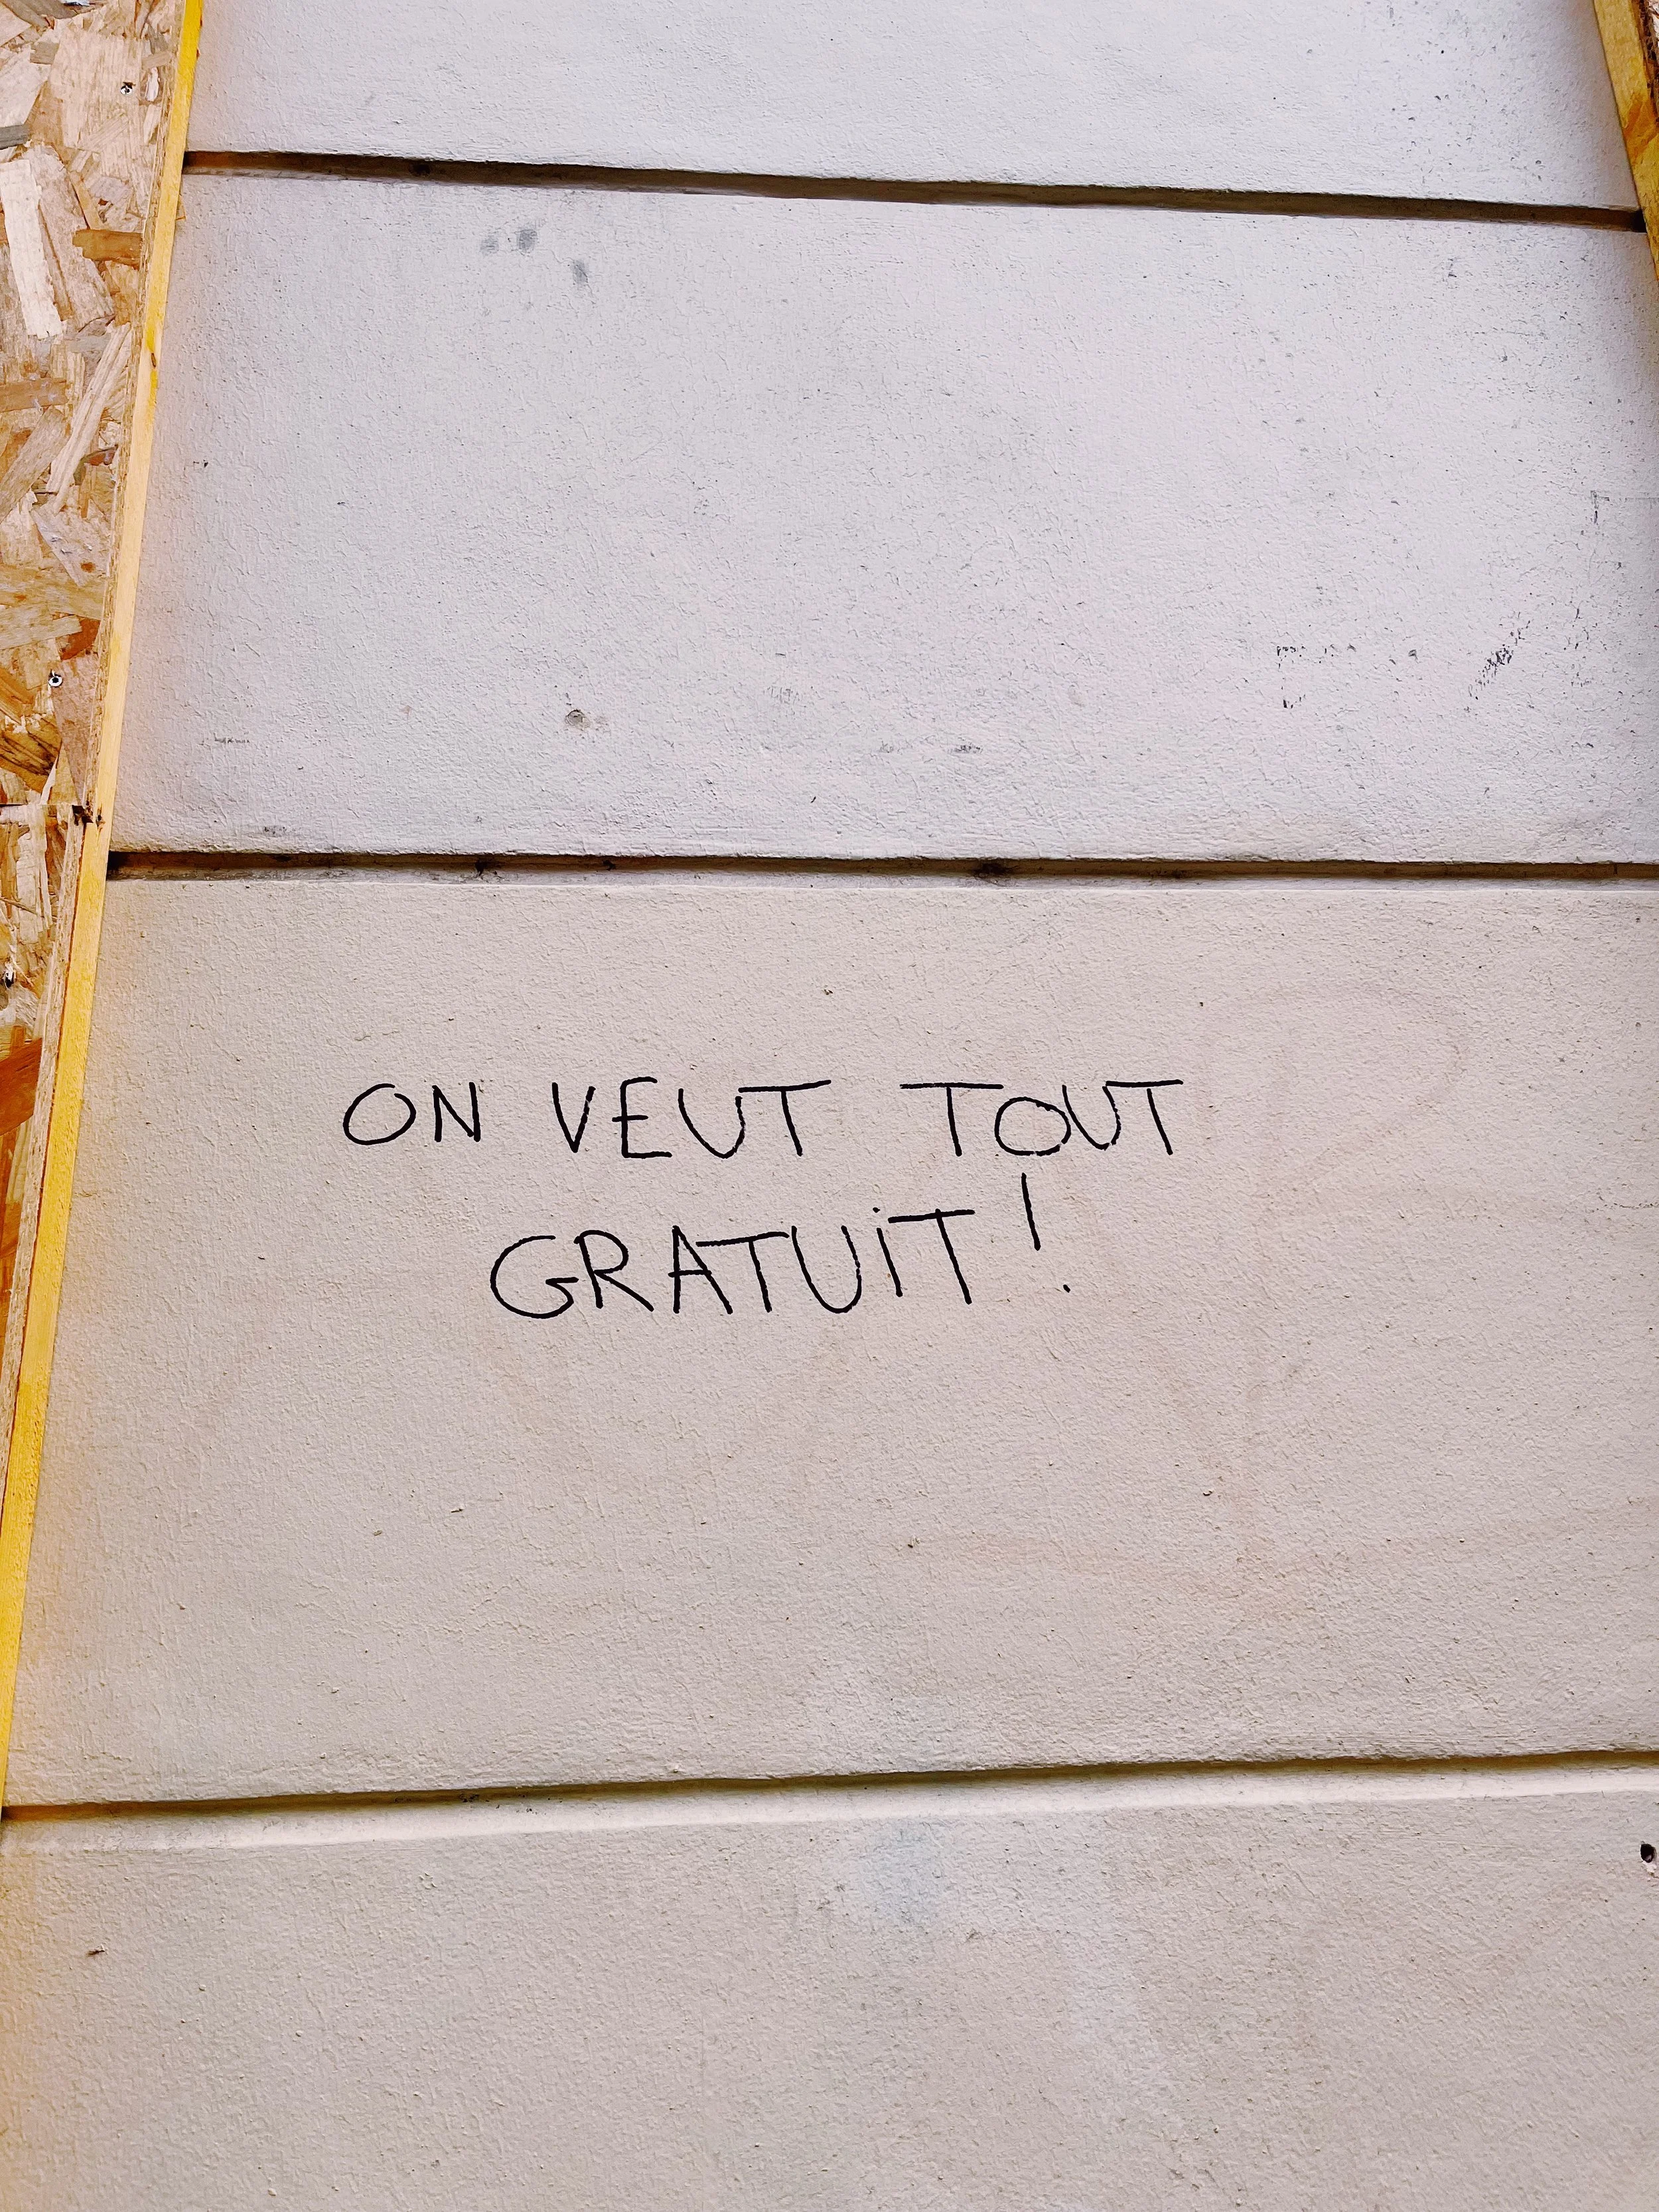 ON VEUT TOUT
GRATUiT !